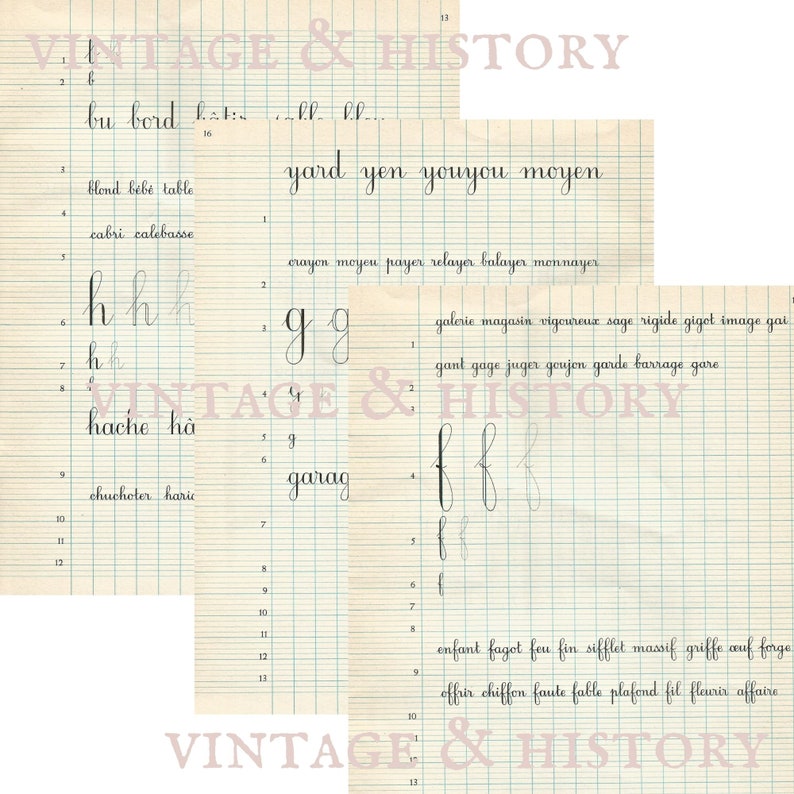 VINTAGE & HISTORY
13
1 b b
2 b
bu bord bâtir table bleu
3
blond bébé table
4
cabri calebasse
5
h h h
6
h h
7
8 h
hache hâ
9
chuchoter haric
10
11
12
16
yard yen youyou moyen
1
crayon moyeu payer relayer balayer monnayer
2
g g
3
4 g
5 g
6
garag
7
8
9
10
11
12
13
galerie magasin vigoureux sage rigide gigot image gai
1
gant gage juger goujon garde barrage gare
2
3
VINTAGE & HISTORY
f f f
4
f f
5
6 f
7
8
enfant fagot feu fin sifflet massif griffe œuf forge
9
offrir chiffon faute fable plafond fil fleurir affaire
10
VINTAGE & HISTORY
13